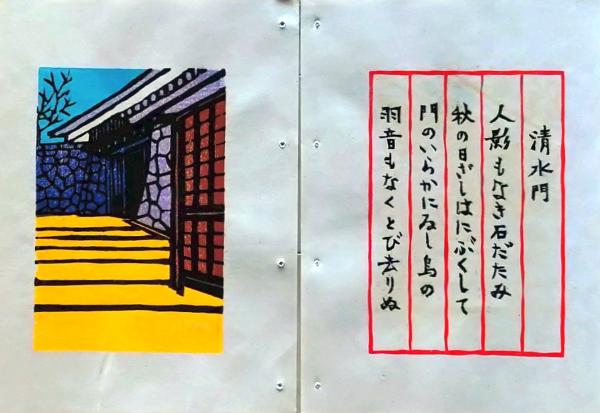 清水門
人影もなき石だたみ
秋の日ざしはにぶくして
門のいらかにゐし鳥の
羽音もなくとび去りぬ